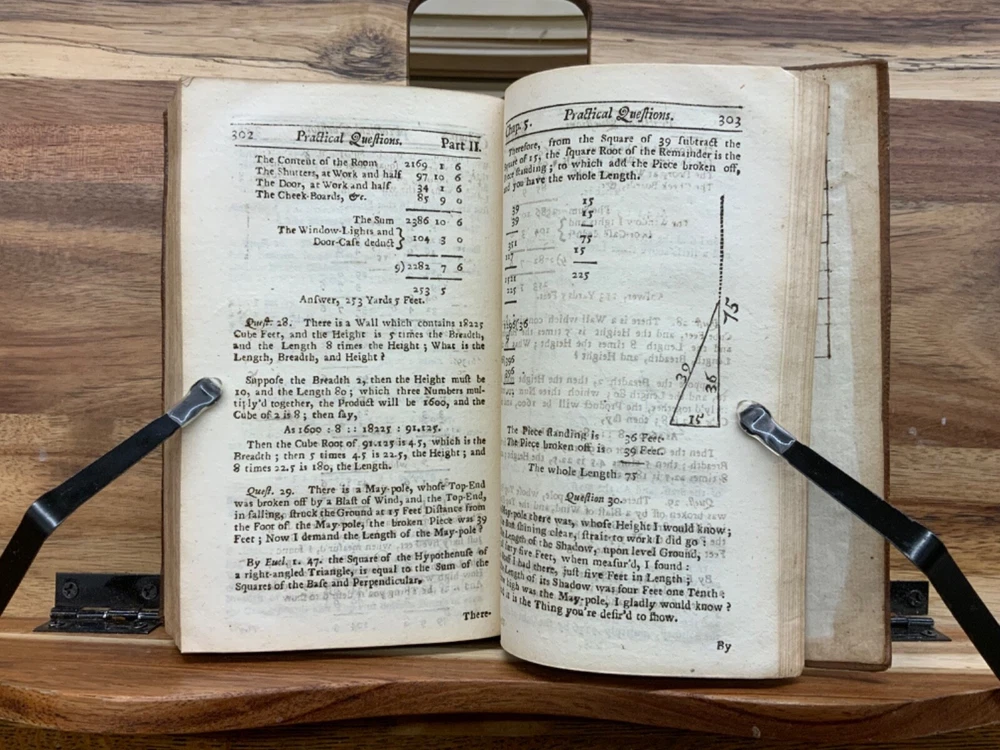 302 Practical Queſtions. Part II.
The Content of the Room 2169 1 6
The Shutters, at Work and half 97 10 6
The Door, at Work and half 34 1 6
The Cheek-Boards, &c. 85 9 0
The Sum 2386 10 6
The Window-Lights and
Door-Caſe deduct } 104 3 0
9) 2282 7 6
253 5
Anſwer, 253 Yards 5 Feet.
Queſt. 28. There is a Wall which contains 18225
Cube Feet, and the Height is 5 times the Breadth,
and the Length 8 times the Height; What is the
Length, Breadth, and Height?
Suppoſe the Breadth 2, then the Height muſt be
10, and the Length 80; which three Numbers mul-
tiply'd together, the Product will be 1600, and the
Cube of 2 is 8; then ſay,
As 1600 : 8 :: 18225 : 91.125.
Then the Cube Root of 91.125 is 4.5, which is the
Breadth; then 5 times 4.5 is 22.5, the Height; and
8 times 22.5 is 180, the Length.
Queſt. 29. There is a May-pole, whoſe Top-End
was broken off by a Blaſt of Wind, and the Top-End,
in falling, ſtruck the Ground at 15 Feet Diſtance from
the Foot of the May-pole, the broken Piece was 39
Feet; Now I demand the Length of the May-pole?
By Eucl. 1. 47. the Square of the Hypothenuſe of
a right-angled Triangle, is equal to the Sum of the
Squares of the Baſe and Perpendicular.
There-
Chap. 5. Practical Queſtions. 303
Therefore, from the Square of 39 ſubtract the
Square of 15, the ſquare Root of the Remainder is the
Piece ſtanding; to which add the Piece broken off,
and you have the whole Length.
39 15
39 15
351 75
117 15
1521 225
225
75
39
36
15
The Piece ſtanding is 36 Feet.
The Piece broken off is 39 Feet.
The whole Length 75
Queſtion 30.
May-pole there was, whoſe Height I would know;
ſhining clear, ſtrait to work I did go;
Length of the Shadow, upon level Ground,
five Feet, when meaſur'd, I found:
I had there, juſt five Feet in Length;
Length of its Shadow was four Feet one Tenth:
high was the May-pole, I gladly would know?
it is the Thing you're deſir'd to ſhow.
By